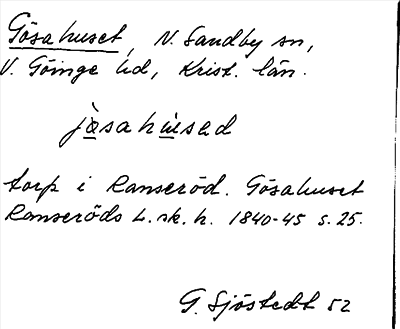 Gösahuset, N. Sandby sn,
V. Göinge hd, Krist. län.
jøsahùsəd
torp i Ranseröd. Gösahuset
Ranseröds L. sk. h. 1840-45 s. 25.
G. Sjöstedt 52